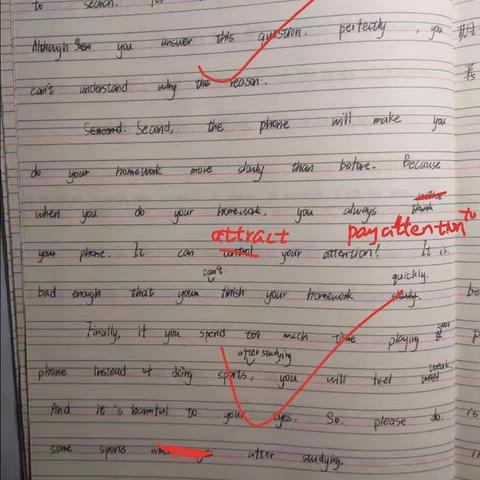 to search. for
Although you answer this question. perfectly, you
can't understand why the reason.
Second. Second, the phone will make you
do your homework more slowly than before. Because
when you do your homework, you always think
attract pay attention to
your phone. It can control your attention! It is
can't quickly.
bad enough that your finish your homework slowly.
Finally, if you spend too much time playing
after studying weak.
phone instead of doing sports, you will feel
And it's harmful to your eyes. So please do
some sports after studying.